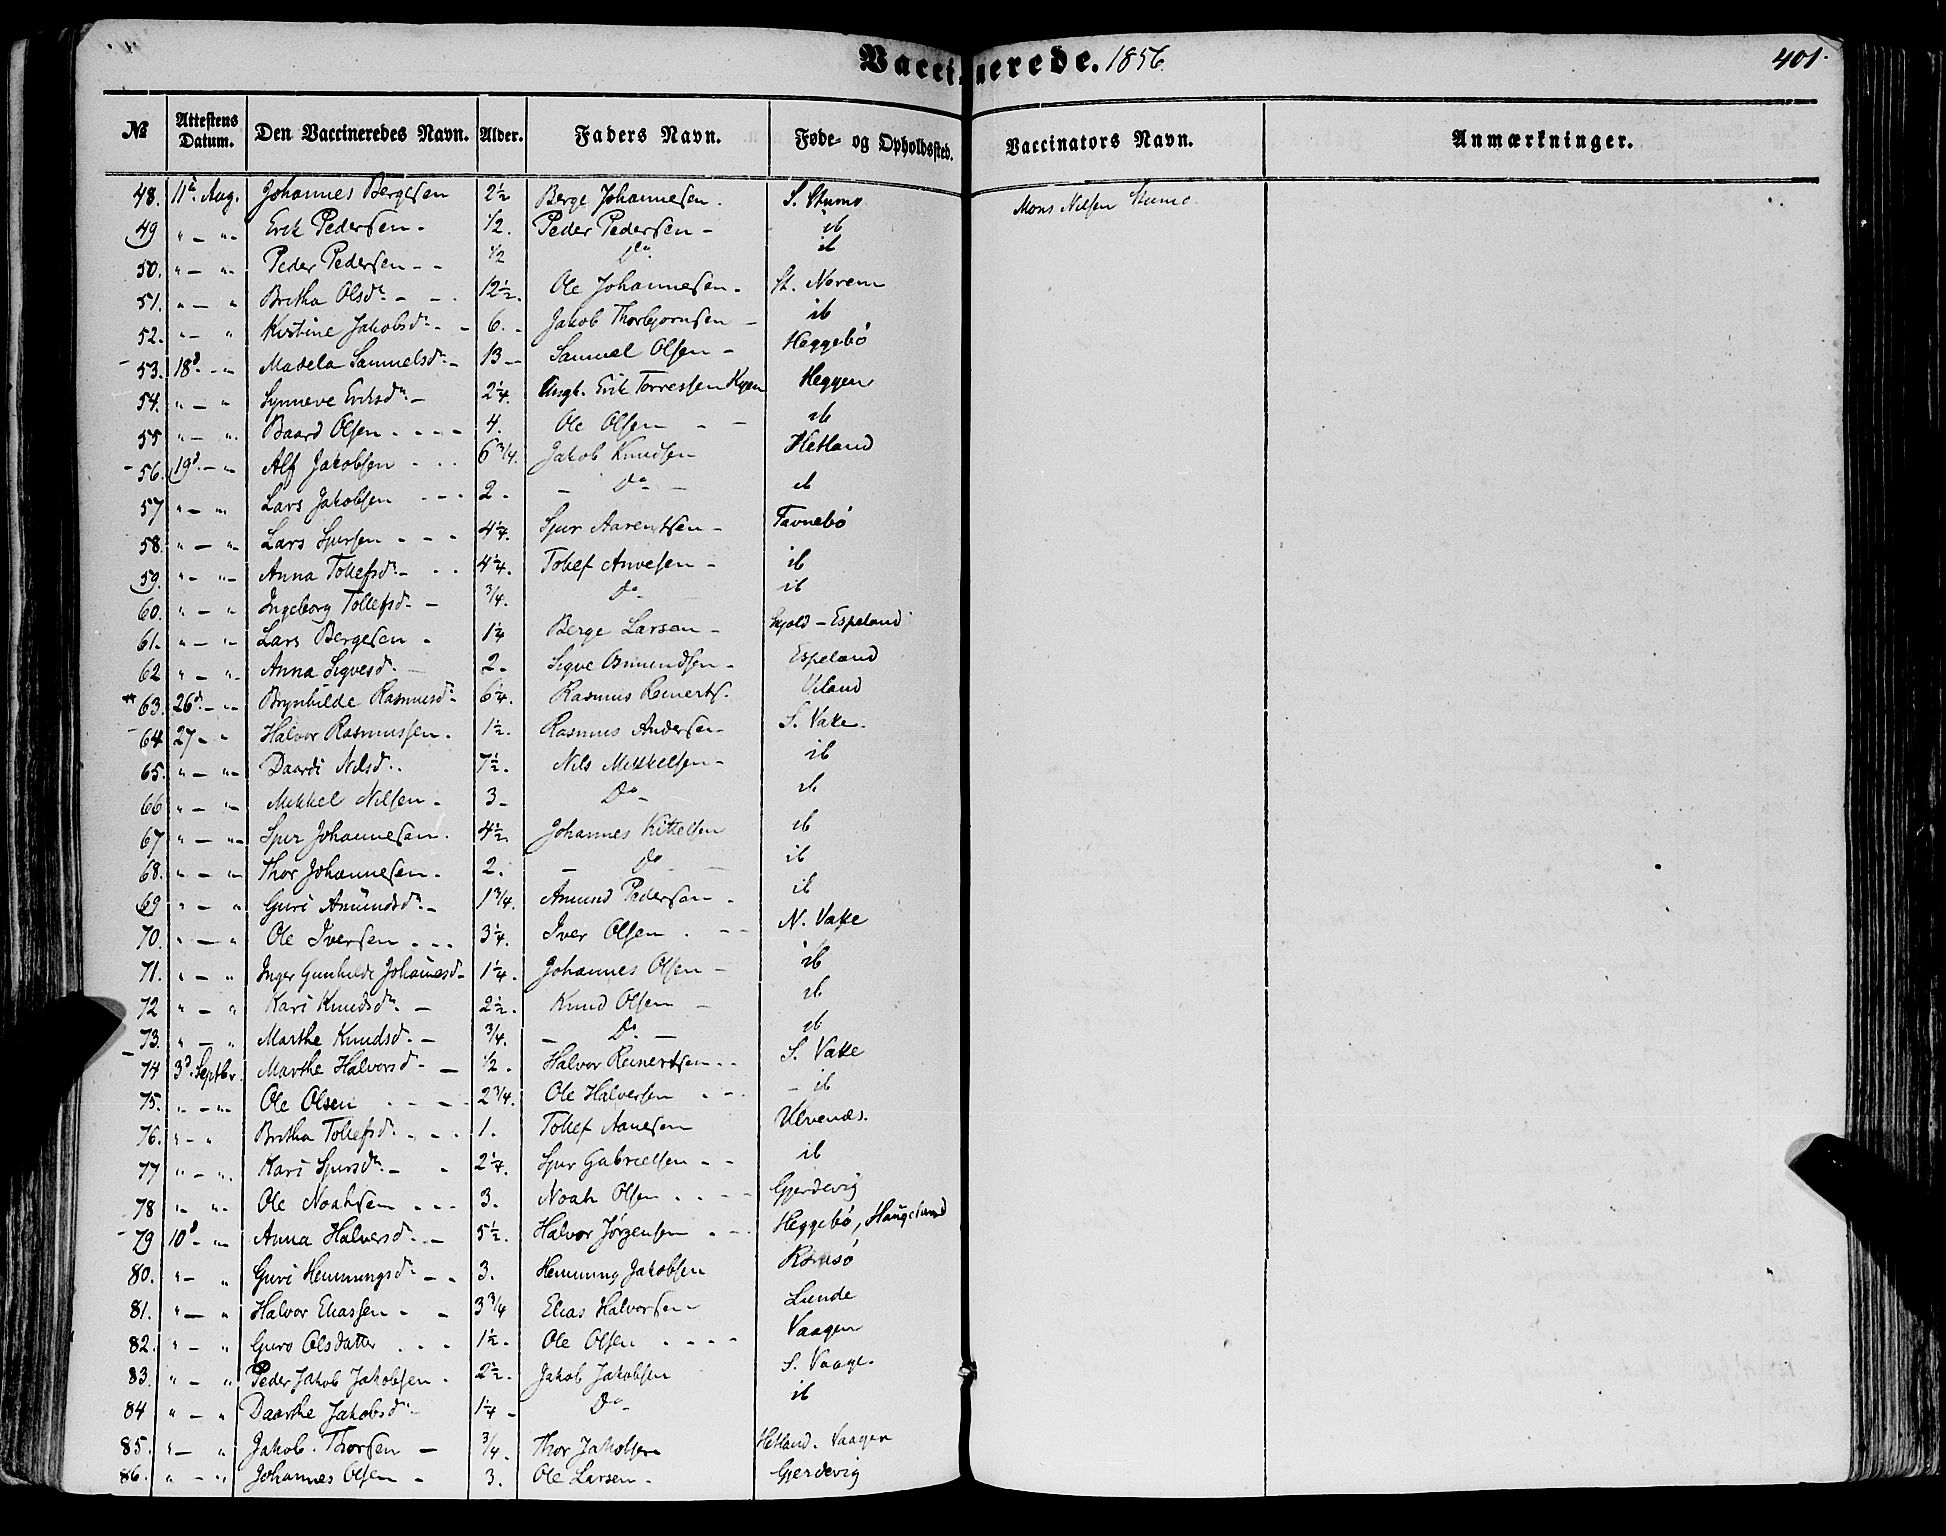 Vaccinerede. 1856. 401.
№ Attestens Datum. Den Vaccineredes Navn. Alder. Faders Navn. Føde- og Opholdssted. Vaccinators Navn. Anmærkninger.
48. 11te Aug. Johannes Bergesen 2½ Berge Johannesen. S. Stumo Mons Nilsen Stumo
49 " — " Erik Pedersen - ½. Peder Pedersen - ib
50. " — " Peder Pedersen - - ½ Do ib
51. " — " Britha Olsdr - - 12½. Ole Johannesen - St. Norem
52. " — " Kirstine Jakobsdr - 6. - Jakob Thorbjørnsen - ib
53. 18d - " Madela Samuelsdr - 13 - Samuel Olsen - Heggebö
54. " — " Synneve Eriksdr - 2¼. Ungk. Erik Torressen Heggen
55 " — " Baard Olsen - - - - 4. Ole Olsen - - ib
56. 19d. - " Alf Jakobsen - - - 6 3/4. Jakob Knudsen Hetland
57 " — " Lars Jakobsen - - - 2. - Do - ib
58. " — " Lars Sjursen - - - 4¼. Sjur Aarentsen - Favnebö
59. " — " Anna Tollefsdr - - - 4¼. Tollef Anvesen - ib
60. " — " Ingeborg Tollefsd. - 3/4. Do - ib
61. " — " Lars Bergesen - 1¼ Berge Larsen - Skjold - Espeland
62 " — " Anna Sigvesd. - 2. Sigve Osmundsen - Espeland
63. 26d. - " Brynhilde Rasmusdr - 6¼. Rasmus Reinerts. Viland
64 27 - " Halvor Rasmussen. 1½. Rasmus Andersen - S. Vake.
65. " — " Daardi Nilsd. 7½. Nils Mikkelsen - ib
66 " — " Mikkel Nilsen. 3 - Do - ib
67 " — " Sjur Johannesen. 4½. Johannes Kittelsen ib
68. " — " Thor Johannesen. 2. - Do - ib
69 " — " Guri Amundsdr - 1 3/4. Amund Pedersen - ib
70. " — " Ole Iversen - - - 3¼. Iver Olsen - - - N. Vake
71. " — " Inger Gunhilde Johannesd - 1¼. Johannes Olsen - ib
72 " — " Kari Knudsdr - 2½. Knud Olsen - ib
73. " — " Marthe Knudsd. - 3/4. - Do - ib
74 3d. Septbr. Marthe Halvorsd. - ½. Halvor Reinertsen - - S. Vake
75. " — " Ole Olsen - - - 2 3/4. Ole Halversen - - - ib
76. " - " Britha Tollefsd. - - - 1. Tollef Aanesen Ulvenæs.
77 " — " Kari Sjursdr - - 2¼. Sjur Gabrielsen - - ib
78 " — " Ole Noahsen - - - 3. Noah Olsen - - - - Gjerdevig
79 10d - " Anna Halversd. - 5½. Halvor Jörgensen - - Heggebö, Haugesund
80. " — " Guri Hemmingsdr - - 3. Hemming Jakobsen
81. " — " Halvor Eliassen - - 3 3/4 Elias Halvorsen - Lunde
82. " — " Guro Olsdatter - - - 1½. Ole Olsen - - - - Vaagen
83. " — " Peder Jakob Jakobsen. 2½. Jakob Jakobsen S. Vaage.
84 " — " Daarthe Jakobsdr 1¼ - Do - ib
85. " — " Jakob Thorsen - 3/4. Thor Jakobsen Hetland. Vaagen
86. " — " Johannes Olsen - 3. Ole Larsen. Gjerdevig